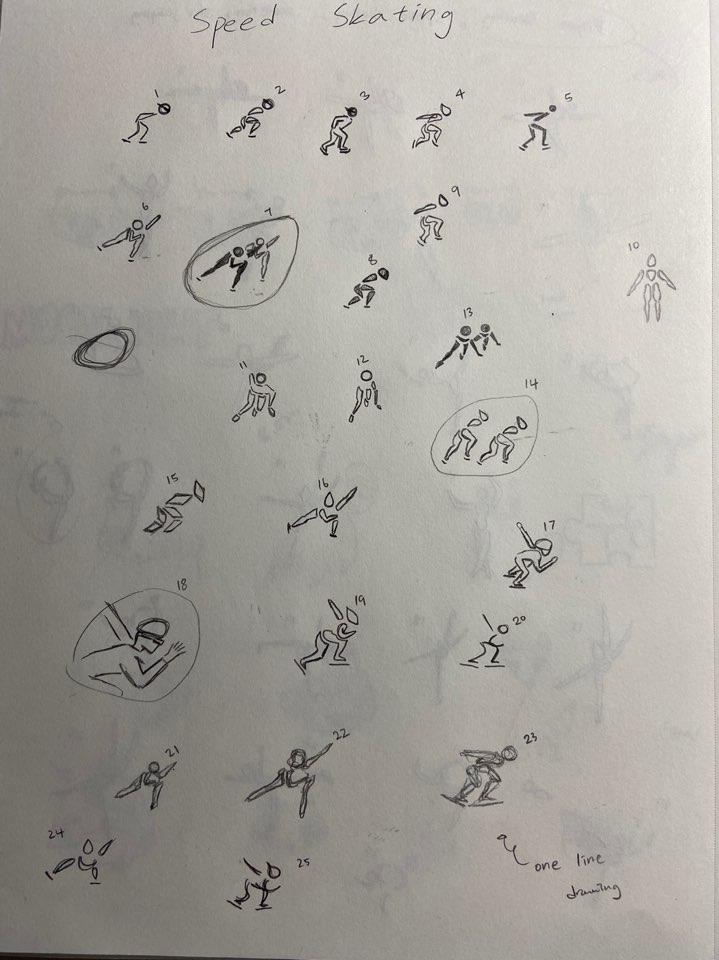 Speed Skating
1 2 3 4 5
6 7 8 9 10
11 12 13 14
15 16 17
18 19 20
21 22 23
24 25
one line
drawing